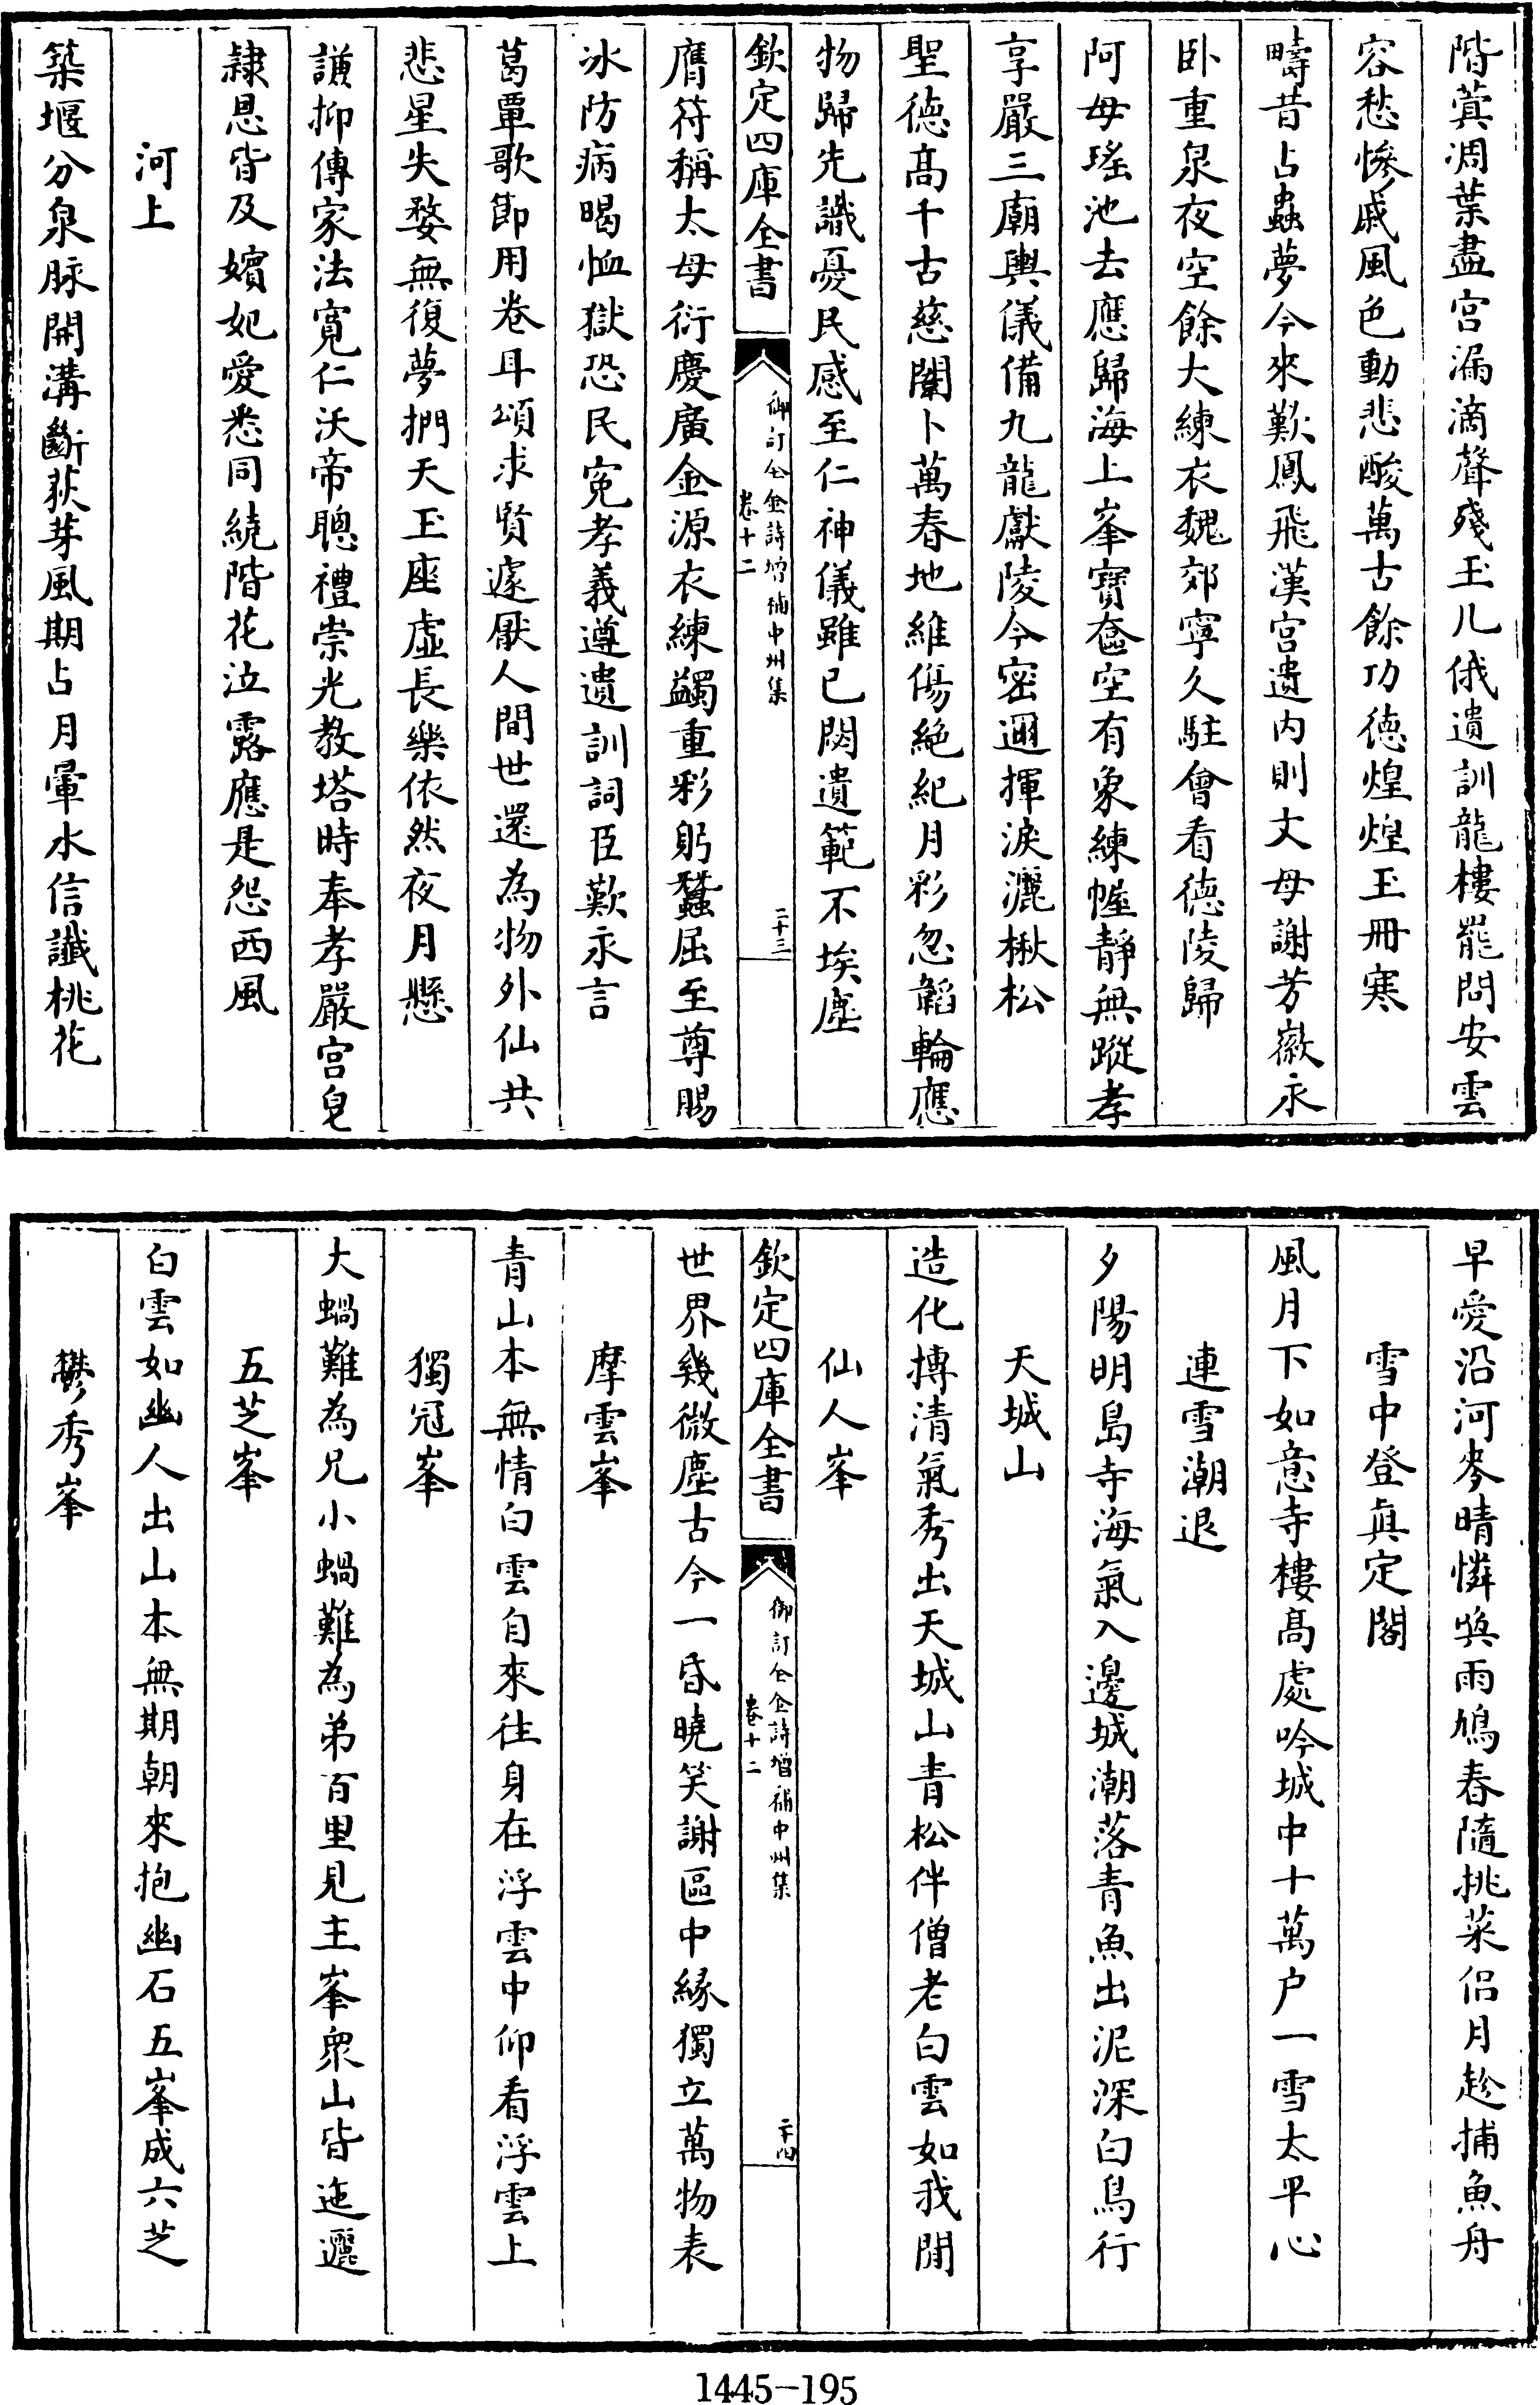 階蓂凋葉盡宮漏滴聲殘玉几俄遺訓龍樓罷問安雲
容愁慘戚風色動悲酸萬古餘功德煌煌玉冊寒
疇昔占蟲夢今來歎鳳飛漢宮遺內則文母謝芳徽永
卧重泉夜空餘大練衣魏郊寧久駐會看德陵歸
阿母瑤池去應歸海上峯寶奩空有象練幄靜無蹤孝
享嚴三廟輿儀備九龍獻陵今密邇揮淚灑楸松
聖德髙千古慈闈卜萬春地維傷絕紀月彩忽韜輪應
物歸先識憂民感至仁神儀雖已閟遺範不埃塵
欽定四庫全書
御訂全金詩增補中州集
卷十二
二十三
膺符稱太母衍慶廣金源衣練蠲重彩躬蠶屈至尊賜
冰防病暍恤獄恐民寃孝義遵遺訓詞臣歎永言
葛覃歌節用卷耳頌求賢遽厭人間世還為物外仙共
悲星失婺無復夢捫天玉座虛長樂依然夜月懸
謙抑傳家法寛仁沃帝聰禮崇光教塔時奉孝嚴宮皂
隷恩皆及嬪妃愛悉同繞階花泣露應是怨西風
河上
築堰分泉脉開溝斷荻芽風期占月暈水信讖桃花
早愛沿河麥晴憐喚雨鳩春隨挑菜侣月趁捕魚舟
雪中登真定閣
風月下如意寺樓髙處吟城中十萬户一雪太平心
連雪潮退
夕陽明島寺海氣入邊城潮落青魚出泥深白鳥行
天城山
造化摶清氣秀出天城山青松伴僧老白雲如我閒
仙人峯
欽定四庫全書
御訂全金詩增補中州集
卷十二
二十四
世界幾微塵古今一昏曉笑謝區中緣獨立萬物表
摩雲峯
青山本無情白雲自來往身在浮雲中仰看浮雲上
獨冠峯
大蝸難為兄小蝸難為弟百里見主峯衆山皆迤邐
五芝峯
白雲如幽人出山本無期朝來抱幽石五峯成六芝
鬱秀峯
1445-195